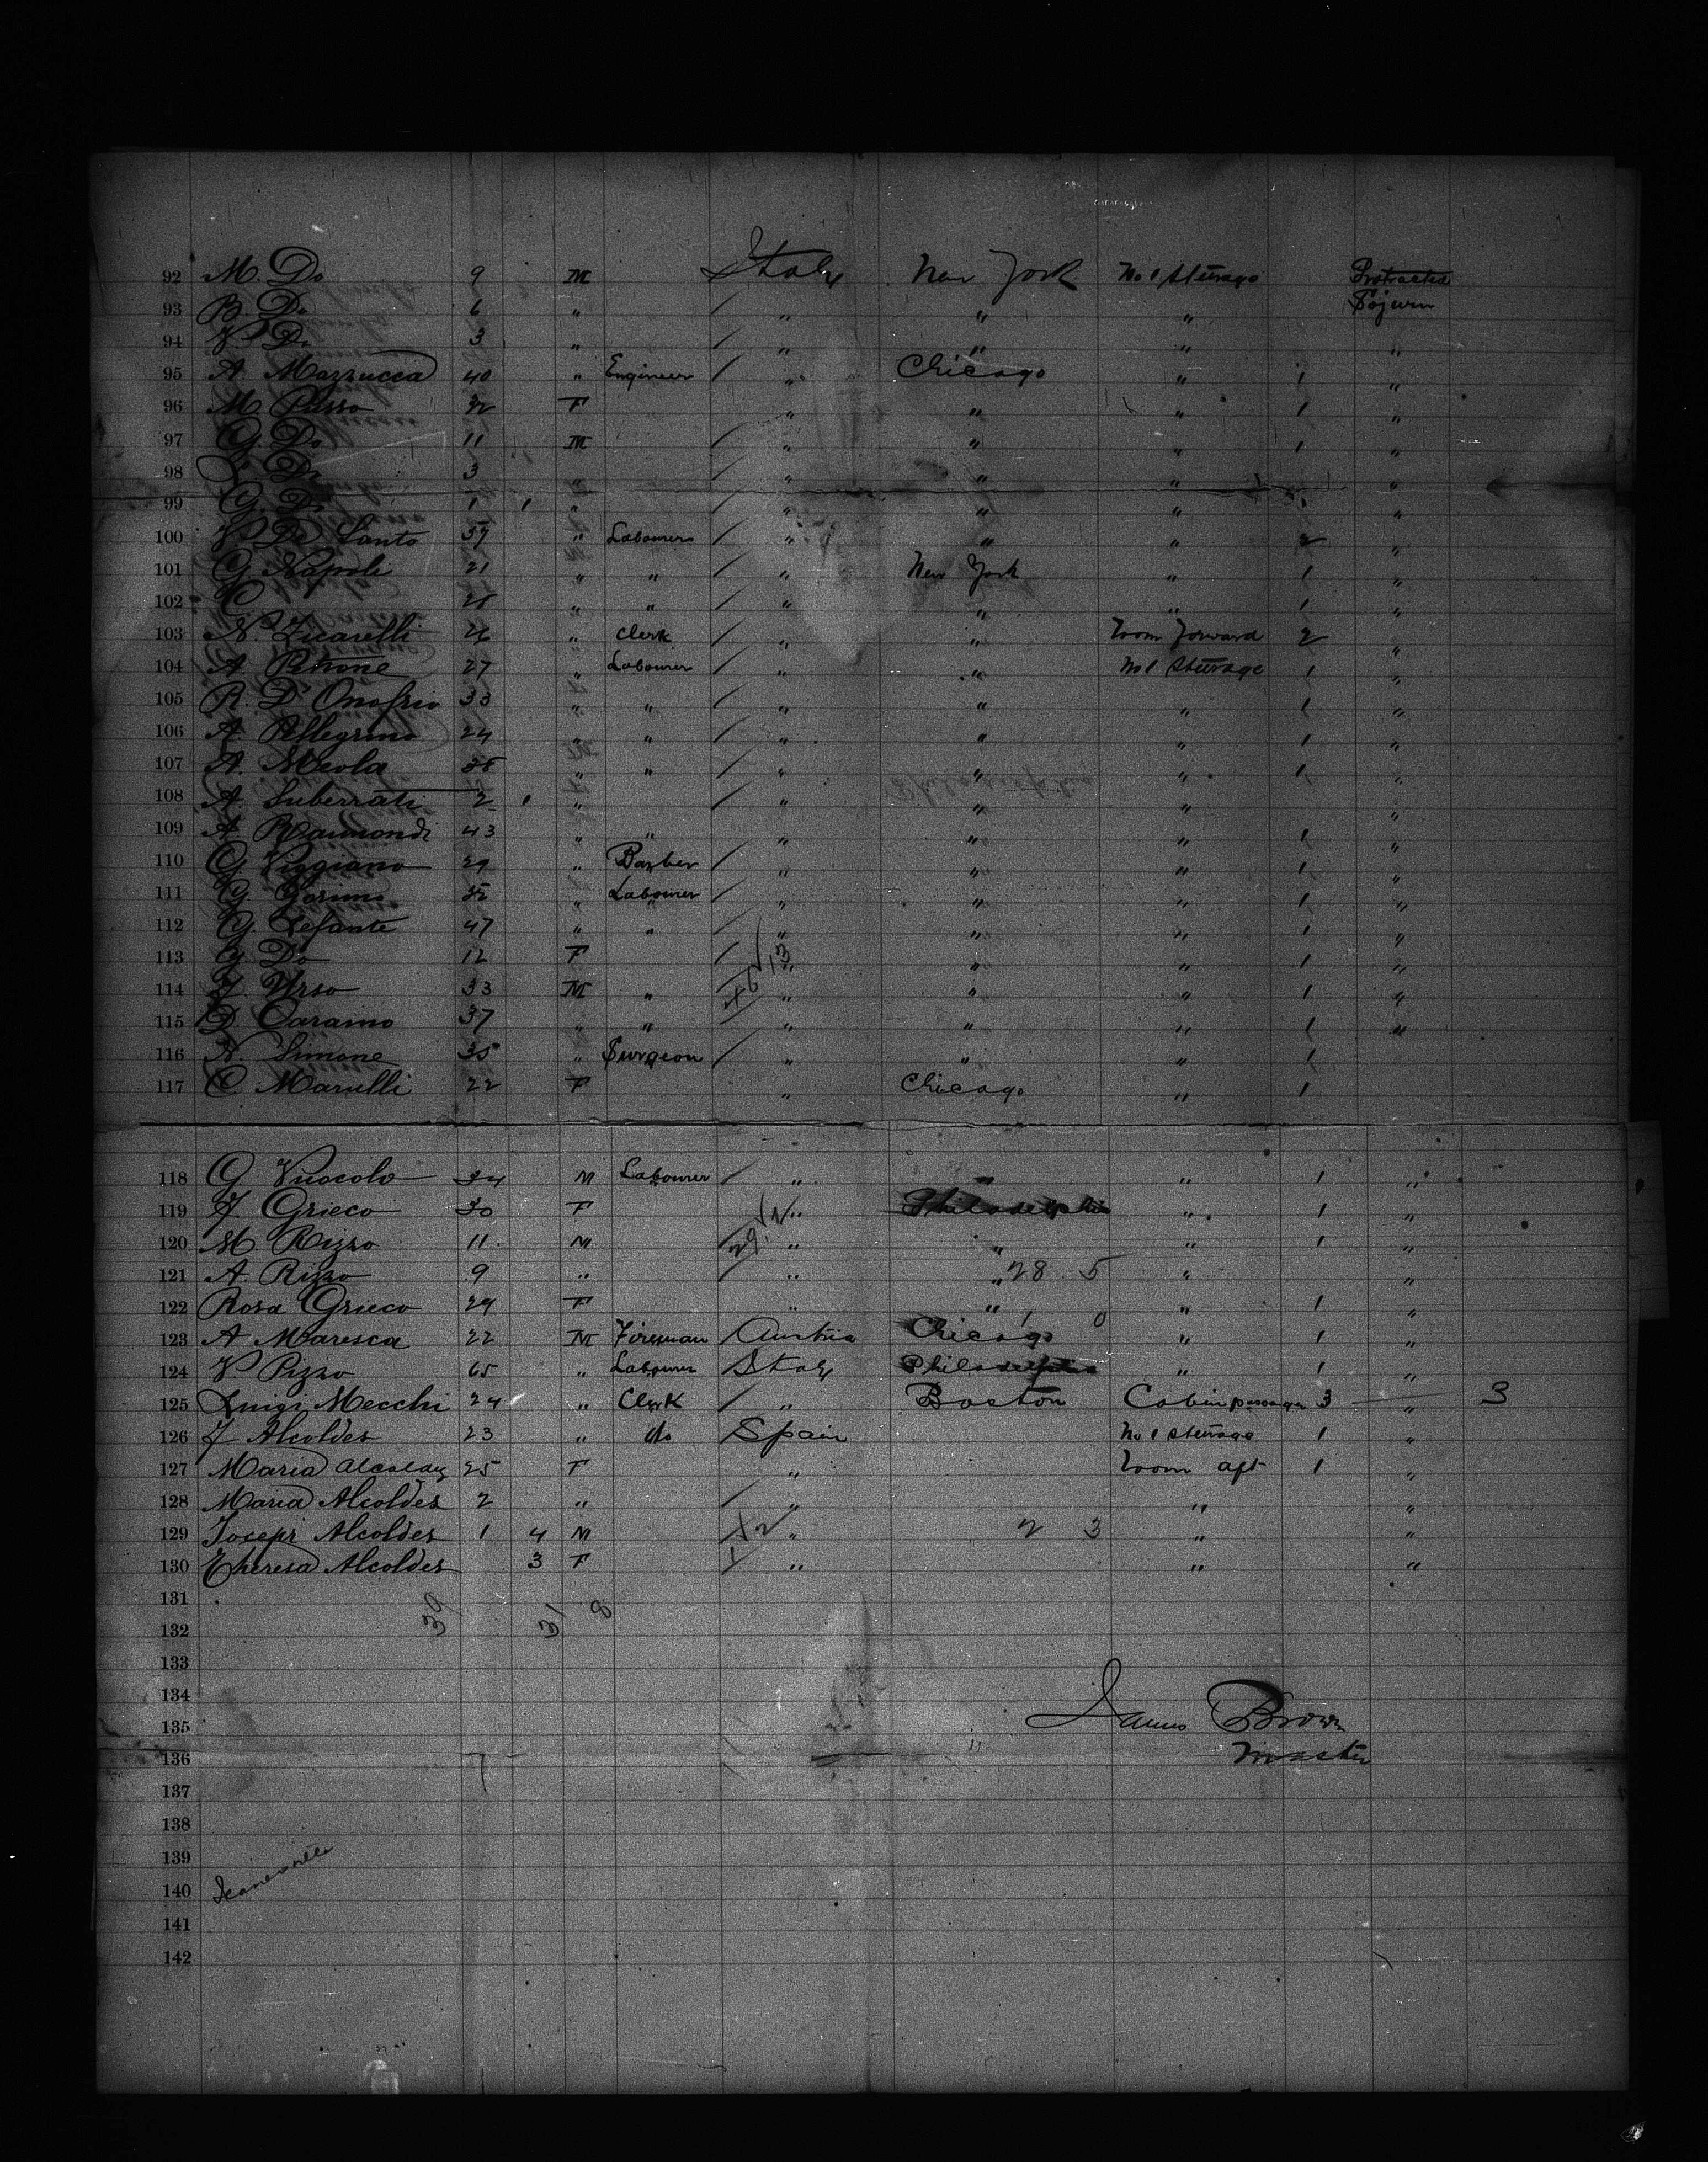 92 M. Do 9 M Italy New York No 1 Steerage Protracted
93 B. Do 6 " / " " " Sojurn
94 V Do 3 " / " " " "
95 A. Mazzucca 40 " Engineer / " Chicago " 1 "
96 M. Russo 32 F " " " 1 "
97 G. Do 11 M / " " " 1 "
98 Do 3 " / " " " "
99 G. Do 1 1 " / " " " "
100 V De Santo 37 " Labourer / " " " 2 "
101 G. Napoli 21 " " / " New York " 1 "
102 C 28 " " / " " " 1 "
103 N. Zicarelli 26 " Clerk / " " Room Forward 2 "
104 A 27 " Labourer / " " No 1 Steerage 1 "
105 R. D'Onofrio 33 " " / " " " 1 "
106 A. Pellegrino 24 " " / " " " 1 "
107 A. Meola 38 " " / " " " 1 "
108 A. Suberrati 2 1 " / " " " "
109 A. Raimondi 43 " " " " " 1 "
110 G. Viggiano 29 " Barber / " " " 1 "
111 G. 32 " Labourer / " " " 1 "
112 G. Lefante 47 " " / " " " 1 "
113 G. Do 12 F / " " " 1 "
114 F. Urso 33 M " " " " 1 "
X6 / 13
115 D. Caraino 37 " " " " " 1 "
116 N. Simone 35 " Surgeon / " " " 1
117 C. Marulli 22 F " Chicago " 1
118 G. Vuocolo 34 M Labourer / " " " 1 "
119 F Grieco 30 F " Philadelphia " 1 "
120 M. Rizzo 11 M 29 " " " 1 "
121 A. Rizzo 9 " / " " 28 5 " "
122 Rosa Grieco 29 F " " " 1 "
123 A Maresca 22 M Fireman Austria Chicago 1 0 " 1 "
124 V Rizzo 65 " Labourer Italy Philadelphia " 1 "
125 Luigi Mecchi 24 " Clerk / " Boston Cabin passager 3 " 3
126 J Alcoldes 23 " do Spain No 1 Steerage 1 "
127 Maria Alcoldes 25 F " Room aft 1 "
128 Maria Alcoldes 2 " / " " "
129 Josepi Alcoldes 1 4 M X2 " 2 3 " "
130 Theresa Alcoldes 3 F " " "
131
39 31 8
132
133
134
James Brown
135
Master
136
137
138
139
140
141
142